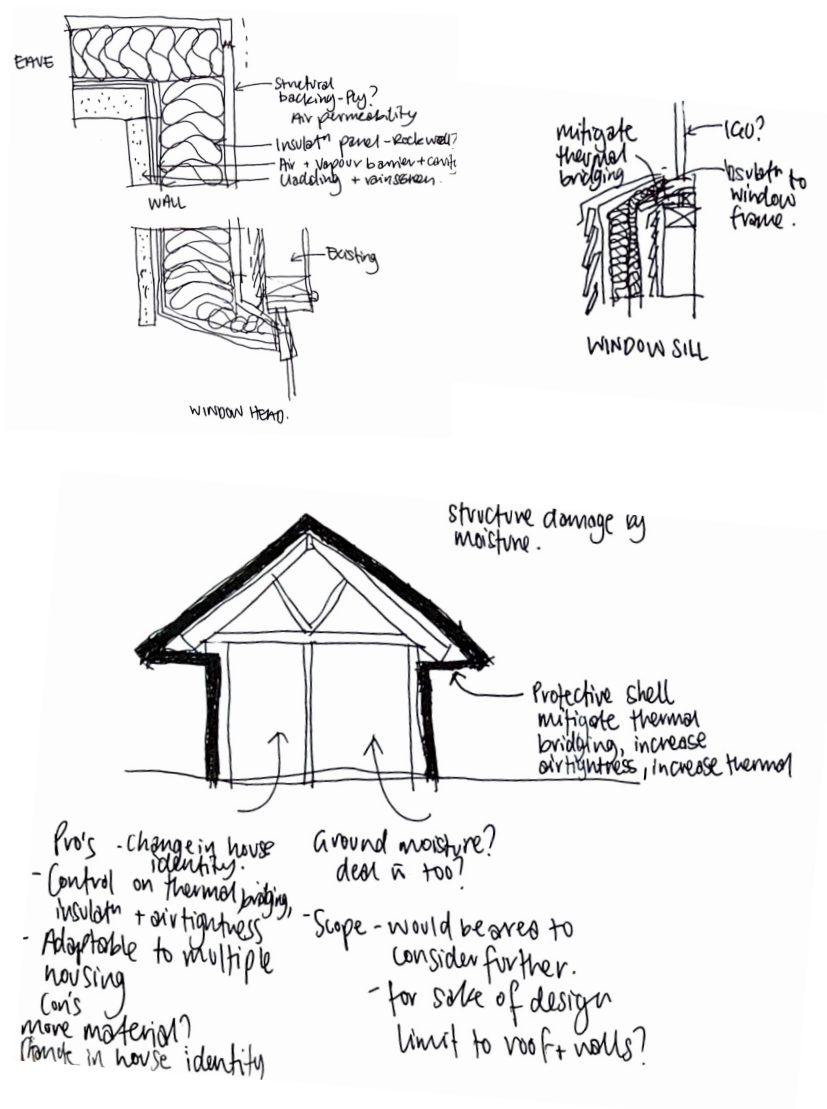 EAVE
Structural
backing - Ply?
Air permeability
Insulatn panel - Rockwool?
Air + vapour barrier + cavity
Cladding + rainscreen.
WALL
Existing
WINDOW HEAD.
mitigate
thermal
bridging
IGU?
Insulatn to
window
frame.
WINDOW SILL
structure damage by
moisture.
Protective shell
mitigate thermal
bridging, increase
airtightness, increase thermal
Pro's - change in house
identity.
- Control on thermal bridging,
insulatn + airtightness
- Adaptable to multiple
housing
Con's
more material?
Change in house identity
Ground moisture?
deal too?
- Scope - would be area to
consider further.
- for sake of design
limit to roof + walls?